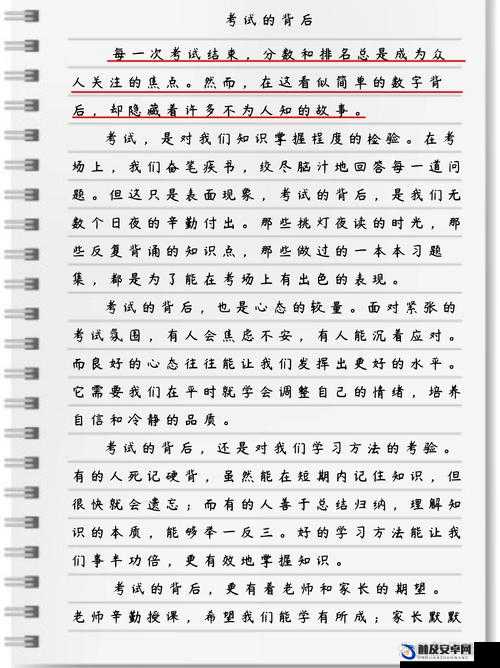 考试的背后
每一次考试结束，分数和排名总是成为众
人关注的焦点。然而，在这看似简单的数字背
后，却隐藏着许多不为人知的故事。
考试，是对我们知识掌握程度的检验。在考
场上，我们奋笔疾书，绞尽脑汁地回答每一道问
题。但这只是表面现象，考试的背后，是我们无
数个日夜的辛勤付出。那些挑灯夜读的时光，那
些反复背诵的知识点，那些做过的一本本习题
集，都是为了能在考场上有出色的表现。
考试的背后，也是心态的较量。面对紧张的
考试氛围，有人会焦虑不安，有人能沉着应对。
而良好的心态往往能让我们发挥出更好的水平。
它需要我们在平时就学会调整自己的情绪，培养
自信和冷静的品质。
考试的背后，还是对我们学习方法的考验。
有的人死记硬背，虽然能在短期内记住知识，但
很快就会遗忘；而有的人善于总结归纳，理解知
识的本质，能够举一反三。好的学习方法能让我
们事半功倍，更有效地掌握知识。
考试的背后，更有着老师和家长的期望。
老师辛勤授课，希望我们能学有所成；家长默默